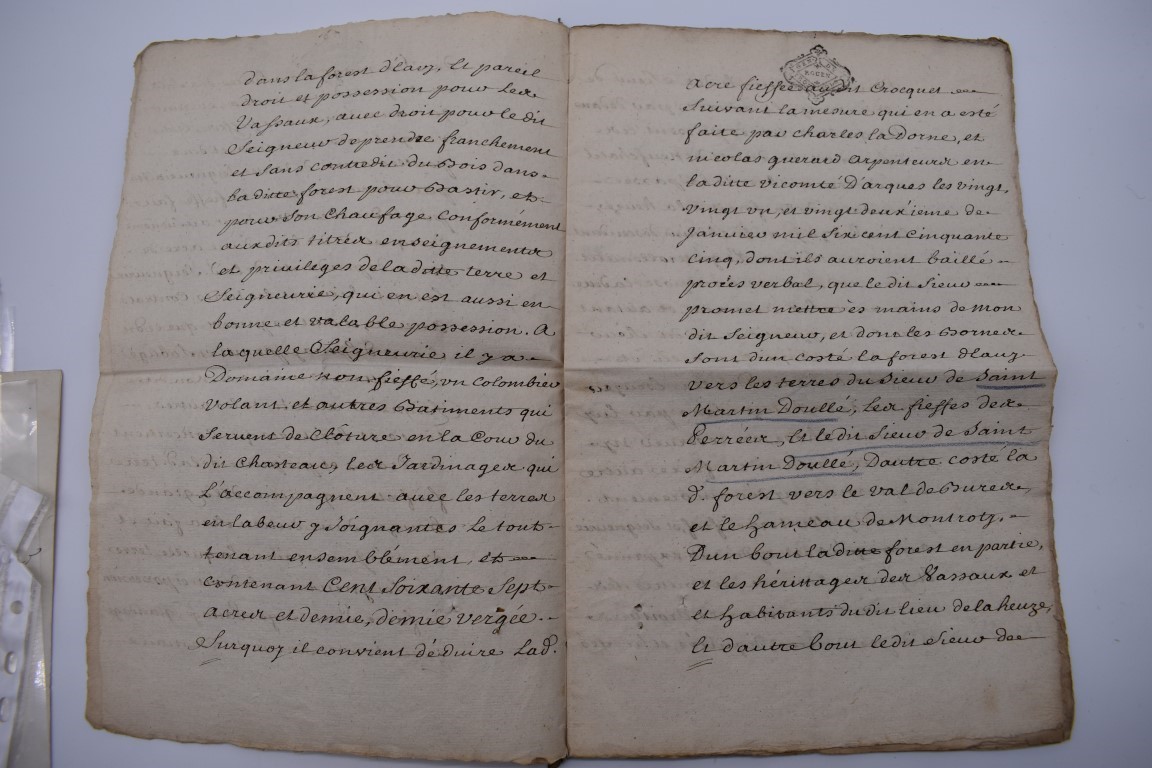 dans la forest d'Eavy, Et pareil
droit et possession pour Les
Vassaux, avec droit pour le dit
Seigneur de prendre franchement
et sans contredit du Bois dans
la ditte forest pour Bastir, et
pour son chaufage conformément
aux dits titres enseignements
et privileges de la ditte terre et
Seigneurie, qui en est aussi en
bonne et valable possession. A
la quelle Seigneurie il y a
Domaine non fieffé, un colombier
volant et autres Batiments qui
servent de Clôture en la Cour du
dit Chasteau, les Jardinages qui
L'accompagnent avec les terres
en labeur y Joignantes Le tout
tenant ensemblément, et
contenant Cent Soixante Sept
acres et demie, demie vergée.
Surquoy il convient déduire Lad.
ROUEN
acre fieffée au dit Crocquet
suivant la mesure qui en a esté
faite par charles la dorne, et
nicolas querard arpenteurs en
la ditte vicomté D'arques les vingt,
vingt un, et vingt deuxieme de
Janvier mil Six cent Cinquante
cinq, dont ils auroient baillé
procès verbal, que le dit Sieur
promet mettre ès mains de mon
dit Seigneur, et dont les Bornes
sont d'un costé la forest d'Eauy
vers les terres du Sieur de Saint
Martin Doullé, les fieffes des
Perrées, Et le dit Sieur de Saint
Martin Doullé, D'autre costé la
d. forest vers le val de Bures,
et le hameau de Montroty,
D'un bout la ditte forest en partie,
et les hérittages des Vassaux et
et habitants du dit lieu de la heuze,
Et d'autre bout le dit Sieur de